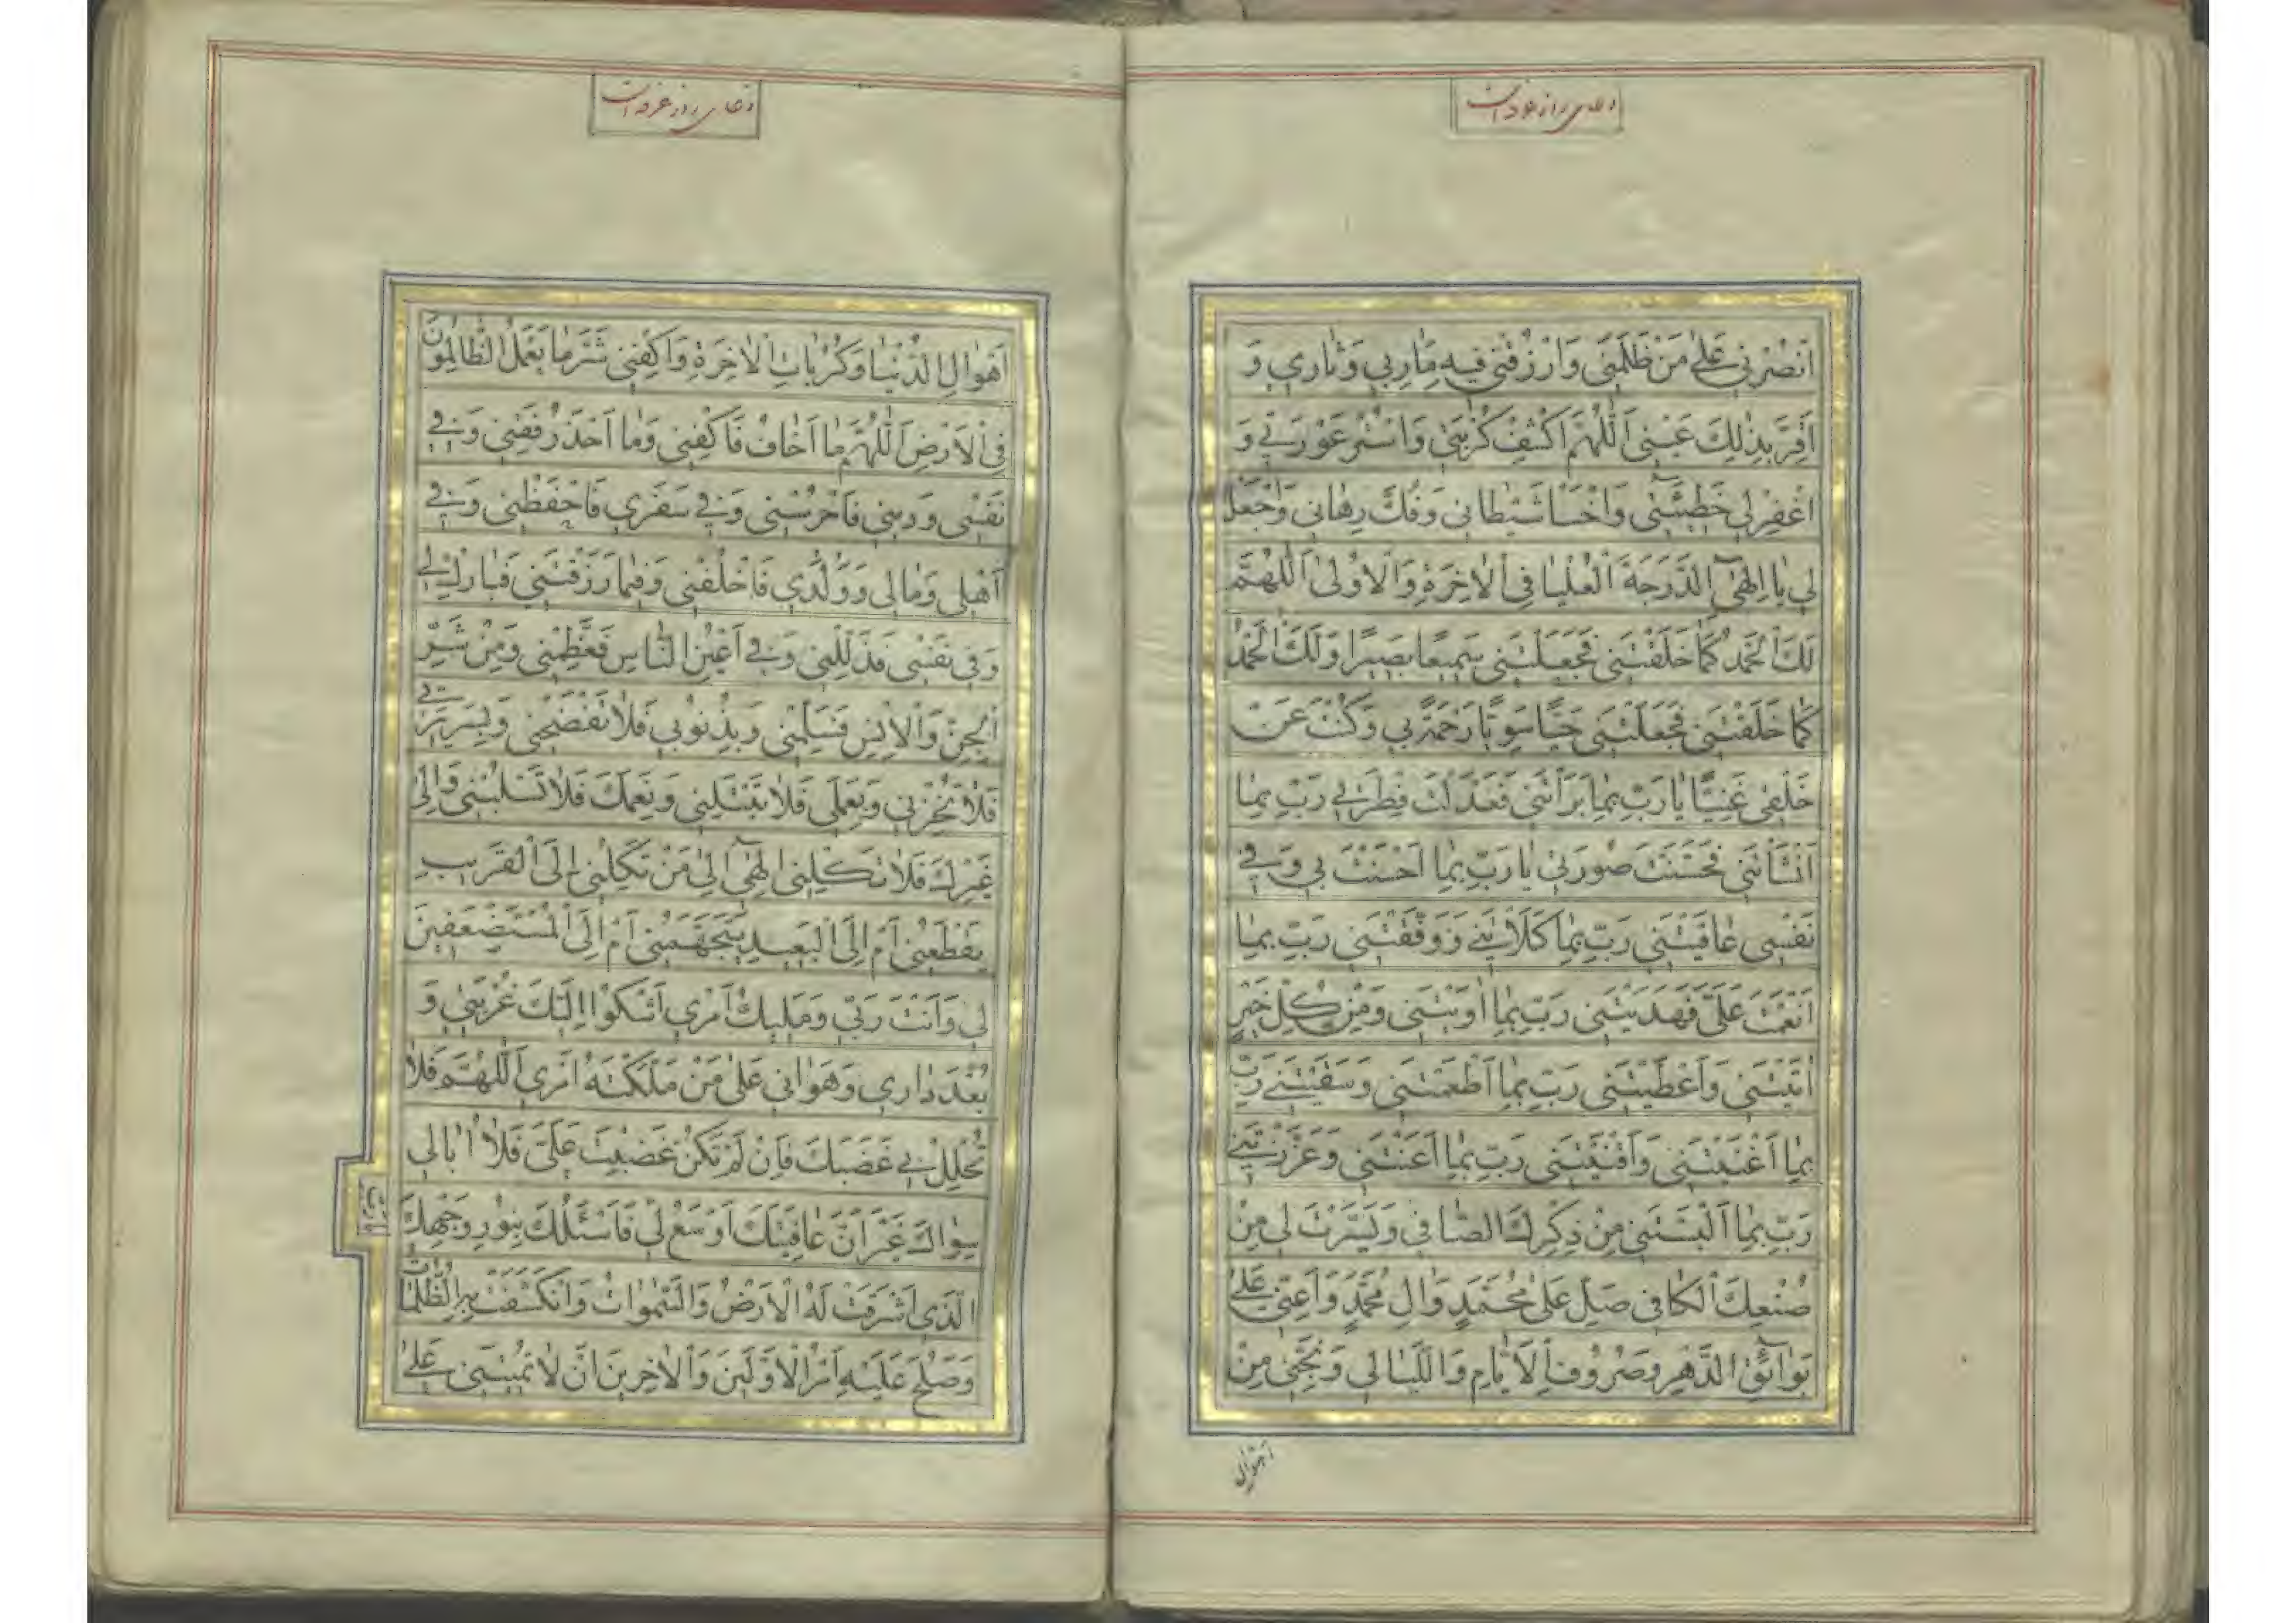 دعای روز عرفه است
اَنْصُرْنی عَلیٰ مَنْ ظَلَمَنی وَارْزُقْنی فیهِ مَارِبی وَثاری وَ
اَقِرَّ بِذٰلِكَ عَیْنی اَللّٰهُمَّ اكْشِفْ كُرْبَتی وَاسْتُرْ عَوْرَتی وَ
اغْفِرْلی خَطیٓئَتی وَاخْسَأْ شَیْطانی وَفُكَّ رِهانی وَاجْعَلْ
لی یا اِلٰهیٓ الدَّرَجَةَ الْعُلْیا فِی الْاٰخِرَةِ وَالْاُولیٰ اَللّٰهُمَّ
لَكَ الْحَمْدُ كَمٰا خَلَقْتَنی فَجَعَلْتَنی سَمیعًا بَصیرًا وَلَكَ الْحَمْدُ
كَمٰا خَلَقْتَنی فَجَعَلْتَنی حَیًّا سَوِیًّا رَحْمَةً بی وَكُنْتَ عَنْ
خَلْقی غَنِیًّا یٰا رَبِّ بِمٰا بَرَأْتَنی فَعَدَّلْتَ فِطْرَتی رَبِّ بِمٰا
اَنْشَأْتَنی فَحَسَّنْتَ صُورَتی یٰا رَبِّ بِمٰا اَحْسَنْتَ بی وَفی
نَفْسی عٰافَیْتَنی رَبِّ بِمٰا كَلَأْتَنی وَوَفَّقْتَنی رَبِّ بِمٰا
اَنْعَمْتَ عَلَیَّ فَهَدَیْتَنی رَبِّ بِمٰا اٰوَیْتَنی وَمِنْ كُلِّ خَیْرٍ
اٰتَیْتَنی وَاَعْطَیْتَنی رَبِّ بِمٰا اَطْعَمْتَنی وَسَقَیْتَنی رَبِّ
بِمٰا اَغْنَیْتَنی وَاَقْنَیْتَنی رَبِّ بِمٰا اَعَنْتَنی وَعَزَّزْتَنی
رَبِّ بِمٰا اَلْبَسْتَنی مِنْ ذِكْرِكَ الصّٰافی وَیَسَّرْتَ لی مِنْ
صُنْعِكَ الْكٰافی صَلِّ عَلیٰ مُحَمَّدٍ وَاٰلِ مُحَمَّدٍ وَاَعِنّی عَلیٰ
بَوٰائِقِ الدَّهْرِ وَصُرُوفِ الْاَیّٰامِ وَاللَّیٰالی وَنَجِّنی مِنْ
اهوال
دعای روز عرفه است
اَهْوٰالِ الدُّنْیٰا وَكُرُبٰاتِ الْاٰخِرَةِ وَاكْفِنی شَرَّ مٰا یَعْمَلُ الظّٰالِمُونَ
فِی الْاَرْضِ اَللّٰهُمَّ مٰا اَخٰافُ فَاكْفِنی وَمٰا اَحْذَرُ فَقِنی وَفی
نَفْسی وَدینی فَاحْرُسْنی وَفی سَفَری فَاحْفَظْنی وَفی
اَهْلی وَمٰالی وَوُلْدی فَاخْلُفْنی وَفیمٰا رَزَقْتَنی فَبٰارِكْ لی
وَفی نَفْسی فَذَلِّلْنی وَفی اَعْیُنِ النّٰاسِ فَعَظِّمْنی وَمِنْ شَرِّ
الْجِنِّ وَالْاِنْسِ فَسَلِّمْنی وَبِذُنُوبی فَلٰا تَفْضَحْنی وَبِسَریرَتی
فَلٰا تُخْزِنی وَبِعَمَلی فَلٰا تَبْتَلِنی وَنِعَمَكَ فَلٰا تَسْلُبْنی وَاِلیٰ
غَیْرِكَ فَلٰا تَكِلْنی اِلٰهیٓ اِلیٰ مَنْ تَكِلُنی اِلَی الْقَریبِ
یَقْطَعُنی اَمْ اِلَی الْبَعیدِ یَتَجَهَّمُنی اَمْ اِلَی الْمُسْتَضْعِفینَ
لی وَاَنْتَ رَبّی وَمَلیكُ اَمْری اَشْكُوا اِلَیْكَ غُرْبَتی وَ
بُعْدَ دٰاری وَهَوٰانی عَلیٰ مَنْ مَلَّكْتَهُ اَمْری اَللّٰهُمَّ فَلٰا
تُحْلِلْ بی غَضَبَكَ فَاِنْ لَمْ تَكُنْ غَضِبْتَ عَلَیَّ فَلٰا اُبٰالی
سِوٰاكَ غَیْرَ اَنَّ عٰافِیَتَكَ اَوْسَعُ لی فَاَسْئَلُكَ بِنُورِ وَجْهِكَ
الَّذی اَشْرَقَتْ لَهُ الْاَرْضُ وَالسَّمٰوٰاتُ وَانْكَشَفَتْ بِهِ الظُّلُمٰاتُ
وَصَلُحَ عَلَیْهِ اَمْرُ الْاَوَّلینَ وَالْاٰخِرینَ اَنْ لٰا تُمیتَنی عَلیٰ